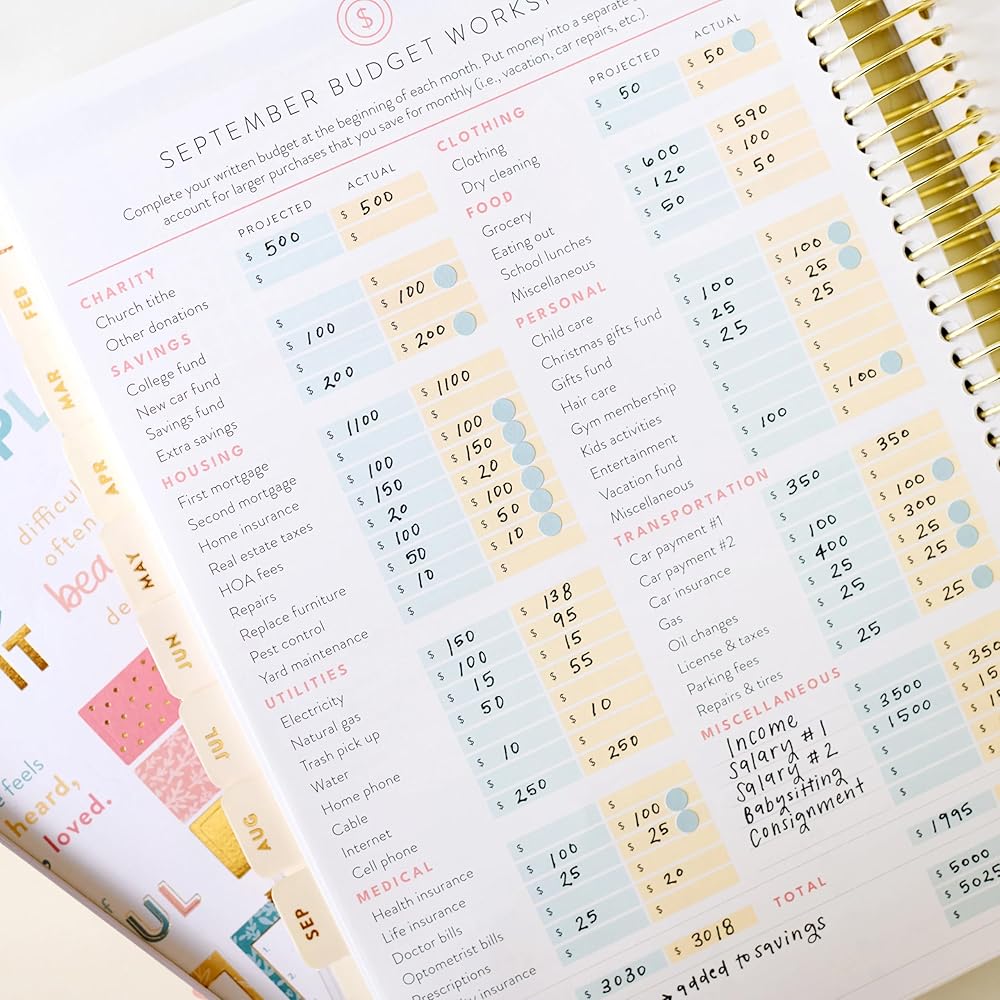 SEPTEMBER BUDGET
Complete your written budget at the beginning of each month. Put money into a separate
account for larger purchases that you save for monthly (i.e., vacation, car repairs, etc.).
PROJECTED ACTUAL
CHARITY
Church tithe $ 500 $ 500
Other donations $ $
SAVINGS
College fund $ $
New car fund $ 100 $ 100
Savings fund $ $
Extra savings $ 200 $ 200
HOUSING
First mortgage $ 1100 $ 1100
Second mortgage $ $
Home insurance $ 100 $ 100
Real estate taxes $ 150 $ 150
HOA fees $ 20 $ 20
Repairs $ 100 $ 100
Replace furniture $ 50 $ 50
Pest control $ 10 $ 10
Yard maintenance $ $
UTILITIES
Electricity $ 150 $ 138
Natural gas $ 100 $ 95
Trash pick up $ 15 $ 15
Water $ 50 $ 55
Home phone $ $
Cable $ 10 $ 10
Internet $ $
Cell phone $ 250 $ 250
MEDICAL
Health insurance $ $
Life insurance $ 100 $ 100
Doctor bills $ 25 $ 25
Optometrist bills $ $
Prescriptions $ 25 $ 20
insurance $ $
$ 3030 $ 3018
PROJECTED ACTUAL
CLOTHING
Clothing $ 50 $ 50
Dry cleaning $ $
FOOD
Grocery $ 600 $ 590
Eating out $ 120 $ 100
School lunches $ 50 $ 50
Miscellaneous $ $
PERSONAL
Child care $ $
Christmas gifts fund $ 100 $ 100
Gifts fund $ 25 $ 25
Hair care $ 25 $ 25
Gym membership $ $
Kids activities $ $
Entertainment $ $
Vacation fund $ 100 $ 100
Miscellaneous $ $
TRANSPORTATION
Car payment #1 $ 350 $ 350
Car payment #2 $ $
Car insurance $ 100 $ 100
Gas $ 400 $ 300
Oil changes $ 25 $ 25
License & taxes $ 25 $ 25
Parking fees $ $
Repairs & tires $ 25 $ 25
MISCELLANEOUS
Income $ $
Salary #1 $ 3500 $
Salary #2 $ 1500 $
Babysitting $ $
Consignment $ $
TOTAL
$ 1995
$ 5000
$ 5025
$
→ added to savings
FEB
MAR
APR
MAY
JUN
JUL
AUG
SEP
PL
difficul
often
bea
de
IT
feels
heard,
loved.
UL